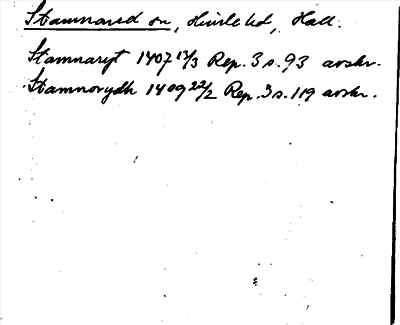 Stamnared sn, Himle hd, Hall.
Stamnaryt 1407 13/3 Rep. 3 s. 93 avskr.
Stamnorydh 1409 22/2 Rep. 3 s. 119 avskr.